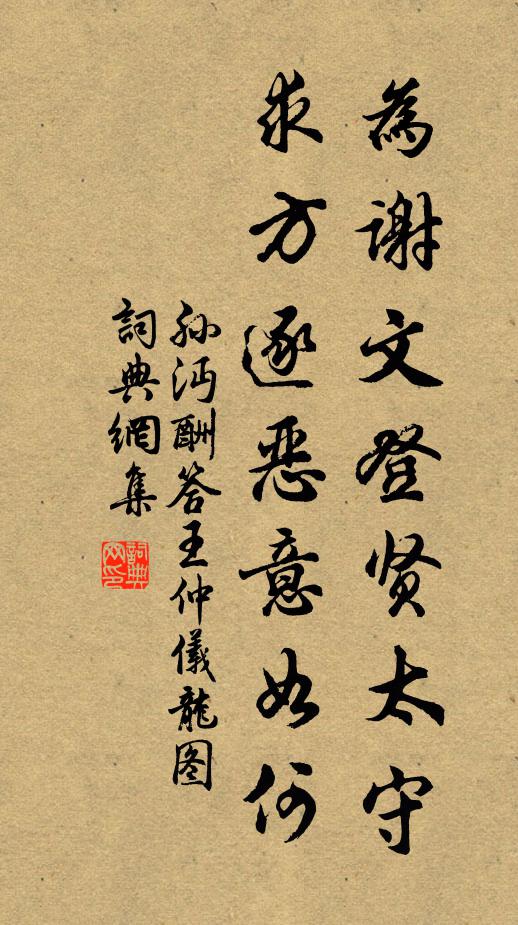 為謝文登贤太守
求方逐恶意如何
孙沔酬答王仲儀龍图
詞典網集
詞典網印